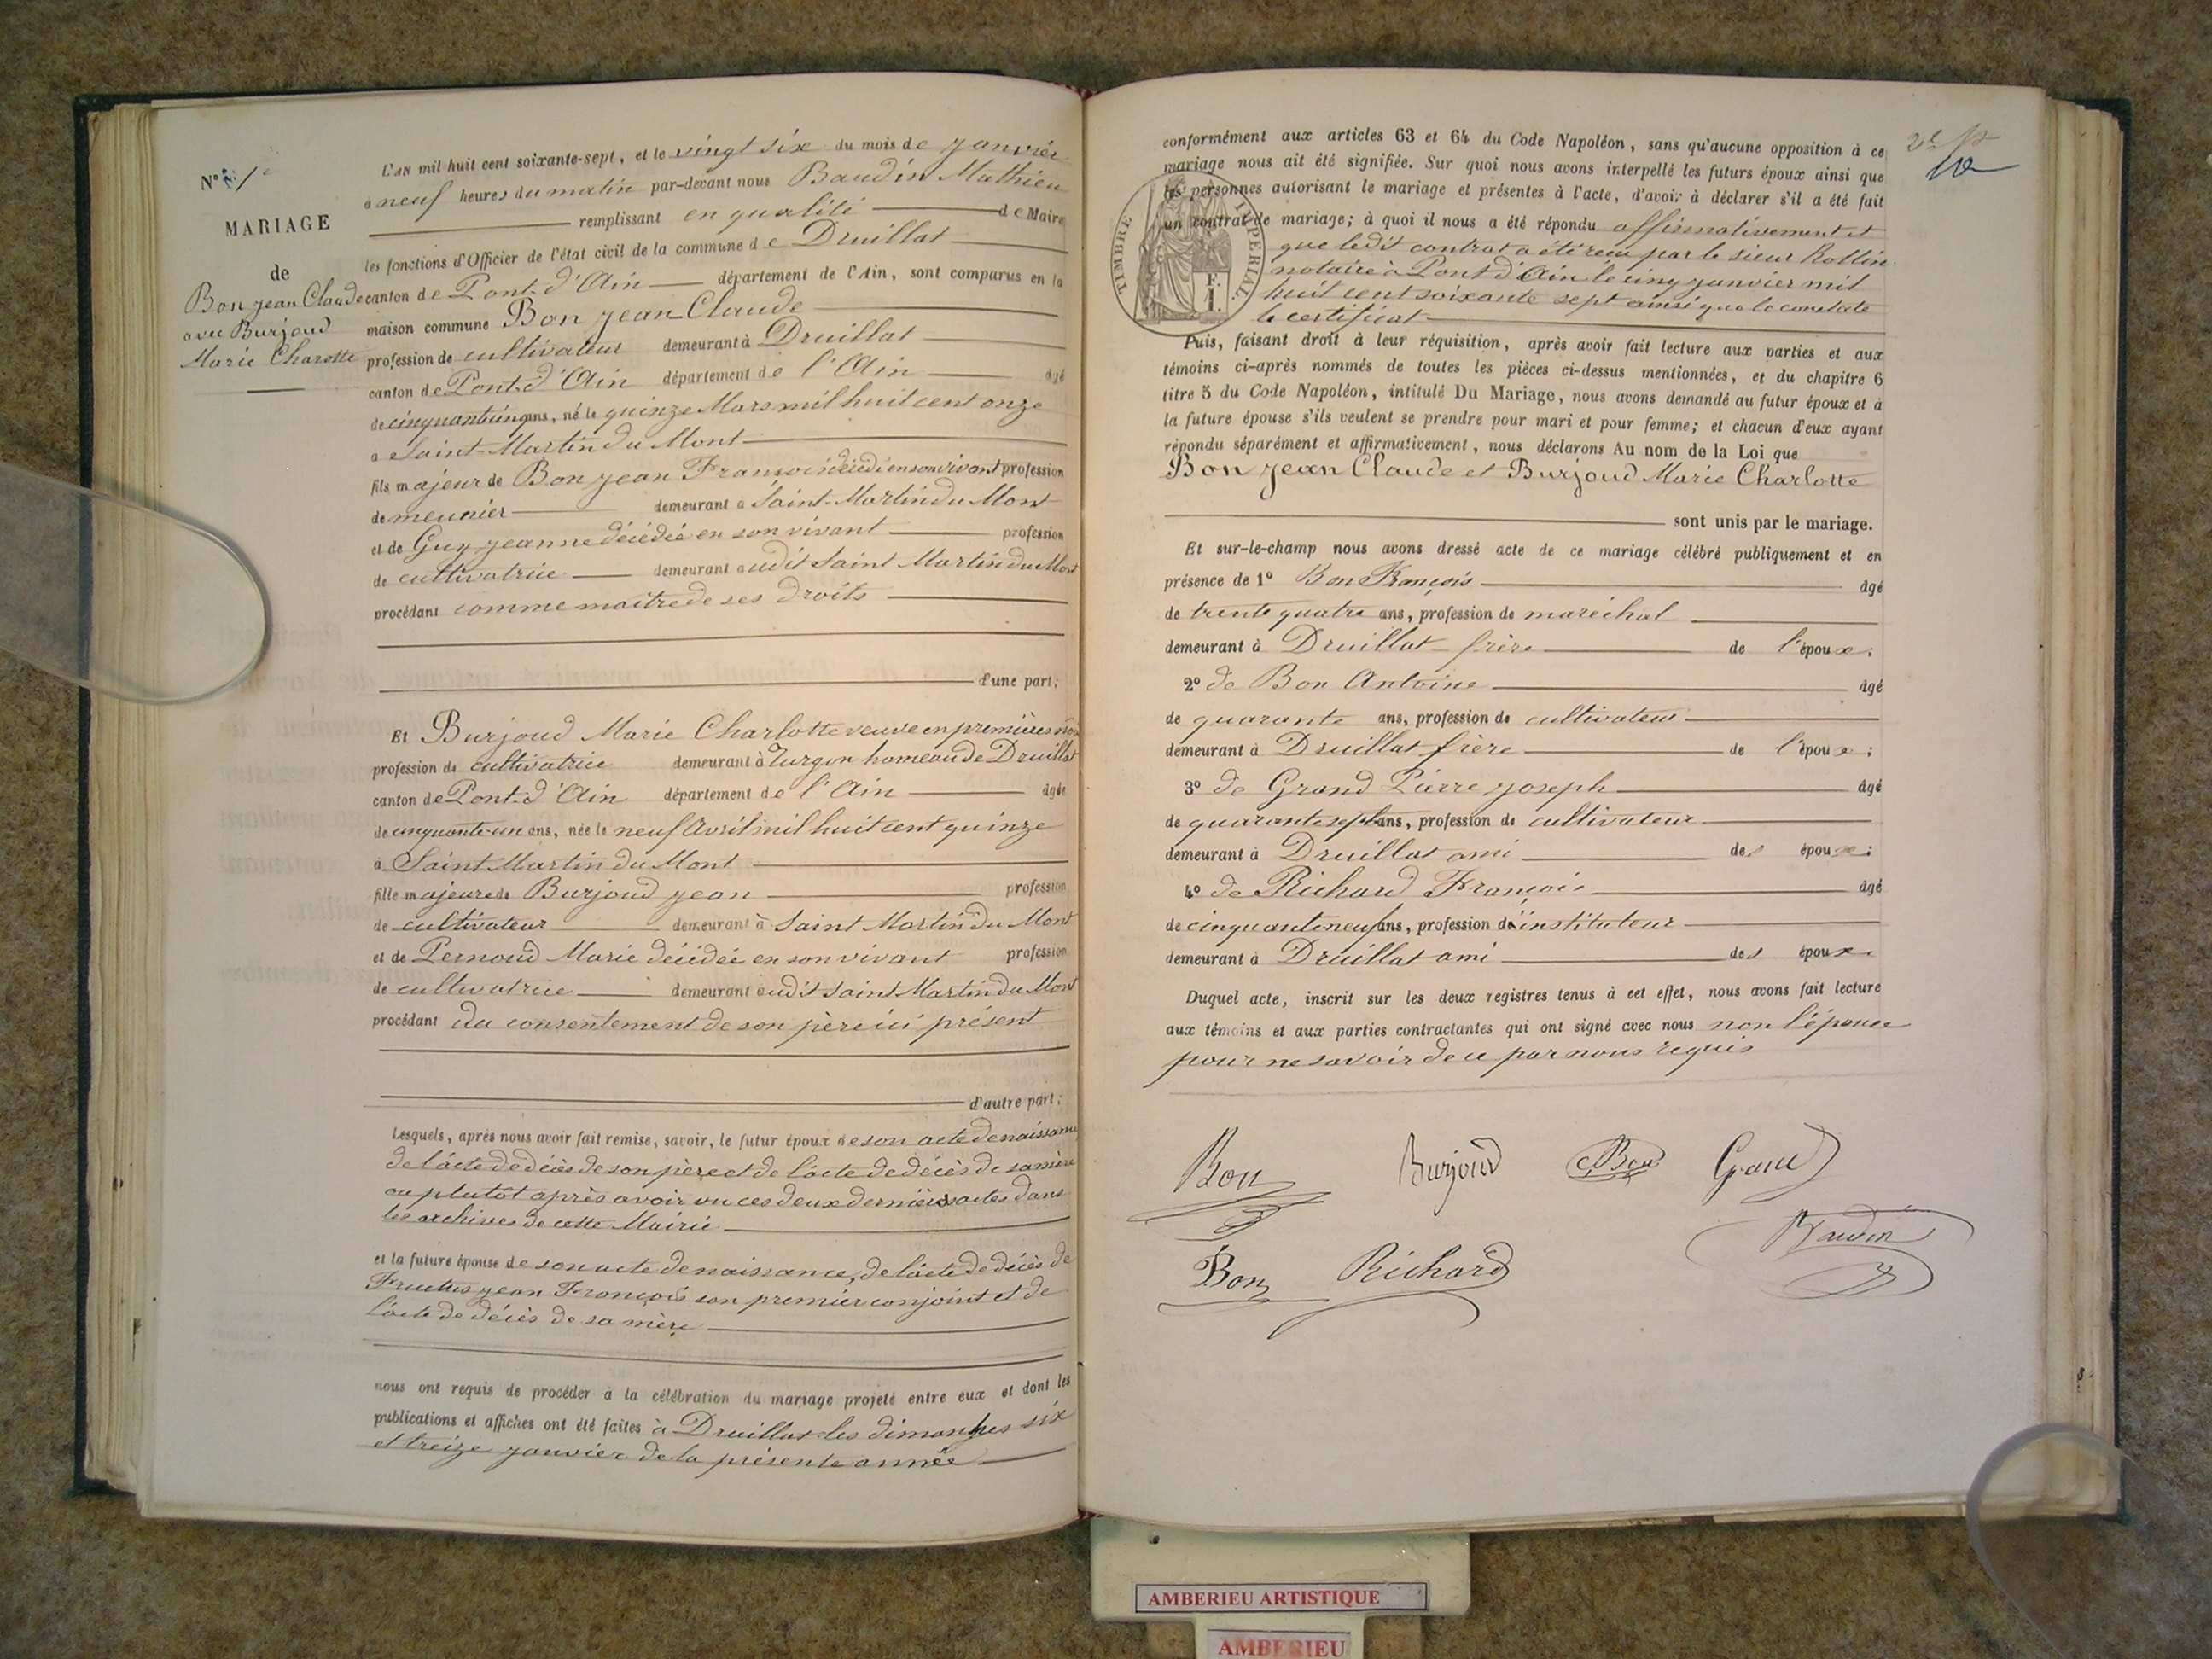 N° 1er
MARIAGE
de
Bon jean Claude
avec Burjoud
Marie Charotte
L'AN mil huit cent soixante-sept, et le vingt six du mois de janvier
à neuf heures du matin par-devant nous Baudin Mathieu
remplissant en qualité de Maire
les fonctions d'Officier de l'état civil de la commune de Druillat
canton de Pont-d'Ain département de l'Ain, sont comparus en la
maison commune Bon jean Claude
profession de cultivateur demeurant à Druillat
canton de Pont-d'Ain département de l'Ain âgé
de cinquante ans, né le quinze Mars mil huit cent onze
à Saint-Martin du Mont
fils majeur de Bon jean François décédé en son vivant profession
de meunier demeurant à Saint-Martin du Mont
et de Guy jeanne décédée en son vivant profession
de cultivatrice demeurant audit Saint Martin du Mont
procédant comme maitre de ses droits
d'une part;
Et Burjoud Marie Charlotte veuve en premières noces
profession de cultivatrice demeurant à Turgon hameau de Druillat
canton de Pont-d'Ain département de l'Ain âgée
de cinquante-un ans, née le neuf Avril mil huit cent quinze
à Saint Martin du Mont
fille majeure de Burjoud jean profession
de cultivateur demeurant à Saint Martin du Mont
et de Pernoud Marie décédée en son vivant profession
de cultivatrice demeurant audit Saint Martin du Mont
procédant du consentement de son père ici présent
d'autre part;
Lesquels, après nous avoir fait remise, savoir, le futur époux de son acte de naissance
de l'acte de décès de son père et de l'acte de décès de sa mère
ou plutôt après avoir vu ces deux derniers actes dans
les archives de cette Mairie
et la future épouse de son acte de naissance, de l'acte de décès de
jean François son premier conjoint et de
l'acte de décès de sa mère
nous ont requis de procéder à la célébration du mariage projeté entre eux et dont les
publications et affiches ont été faites à Druillat les dimanches six
et treize janvier de la présente année
conformément aux articles 63 et 64 du Code Napoléon, sans qu'aucune opposition à ce
mariage nous ait été signifiée. Sur quoi nous avons interpellé les futurs époux ainsi que
les personnes autorisant le mariage et présentes à l'acte, d'avoir à déclarer s'il a été fait
un contrat de mariage; à quoi il nous a été répondu affirmativement et
que ledit contrat a été reçu par le sieur Rollin
notaire à Pont d'Ain le cinq janvier mil
huit cent soixante sept ainsi que le constate
le certificat
TIMBRE IMPERIAL
F.
1.
Puis, faisant droit à leur réquisition, après avoir fait lecture aux parties et aux
témoins ci-après nommés de toutes les pièces ci-dessus mentionnées, et du chapitre 6
titre 5 du Code Napoléon, intitulé Du Mariage, nous avons demandé au futur époux et à
la future épouse s'ils veulent se prendre pour mari et pour femme; et chacun d'eux ayant
répondu séparément et affirmativement, nous déclarons Au nom de la Loi que
Bon jean Claude et Burjoud Marie Charlotte
sont unis par le mariage.
Et sur-le-champ nous avons dressé acte de ce mariage célébré publiquement et en
présence de 1° Bon François âgé
de trente quatre ans, profession de maréchal
demeurant à Druillat frère de l'époux;
2° de Bon Antoine âgé
de quarante ans, profession de cultivateur
demeurant à Druillat frère de l'époux;
3° de Grand Pierre joseph âgé
de quarante sept ans, profession de cultivateur
demeurant à Druillat ami des époux;
4° de Richard François âgé
de cinquante neuf ans, profession d'instituteur
demeurant à Druillat ami des époux
Duquel acte, inscrit sur les deux registres tenus à cet effet, nous avons fait lecture
aux témoins et aux parties contractantes qui ont signé avec nous non l'épouse
pour ne savoir de ce par nous requis
Bon Burjoud Bon Grand
Baudin
Bon Richard
AMBERIEU ARTISTIQUE
AMBERIEU